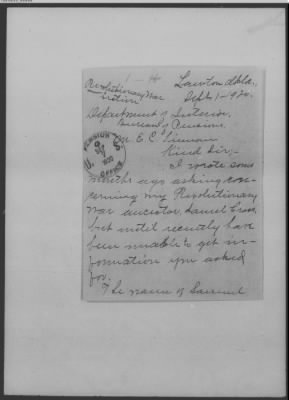 Lawton Okla.,
Sept. 1 - 920.
Department of Interior,
Bureau of Pensions.
Mr. E. C.
Kind Sir,-
I wrote some
months ago asking con-
cerning my Revolutionary
War ancestor, Samuel
but until recently have
been unable to get in-
formation you asked
for.
The name of Samuel
PENSION
OFFICE